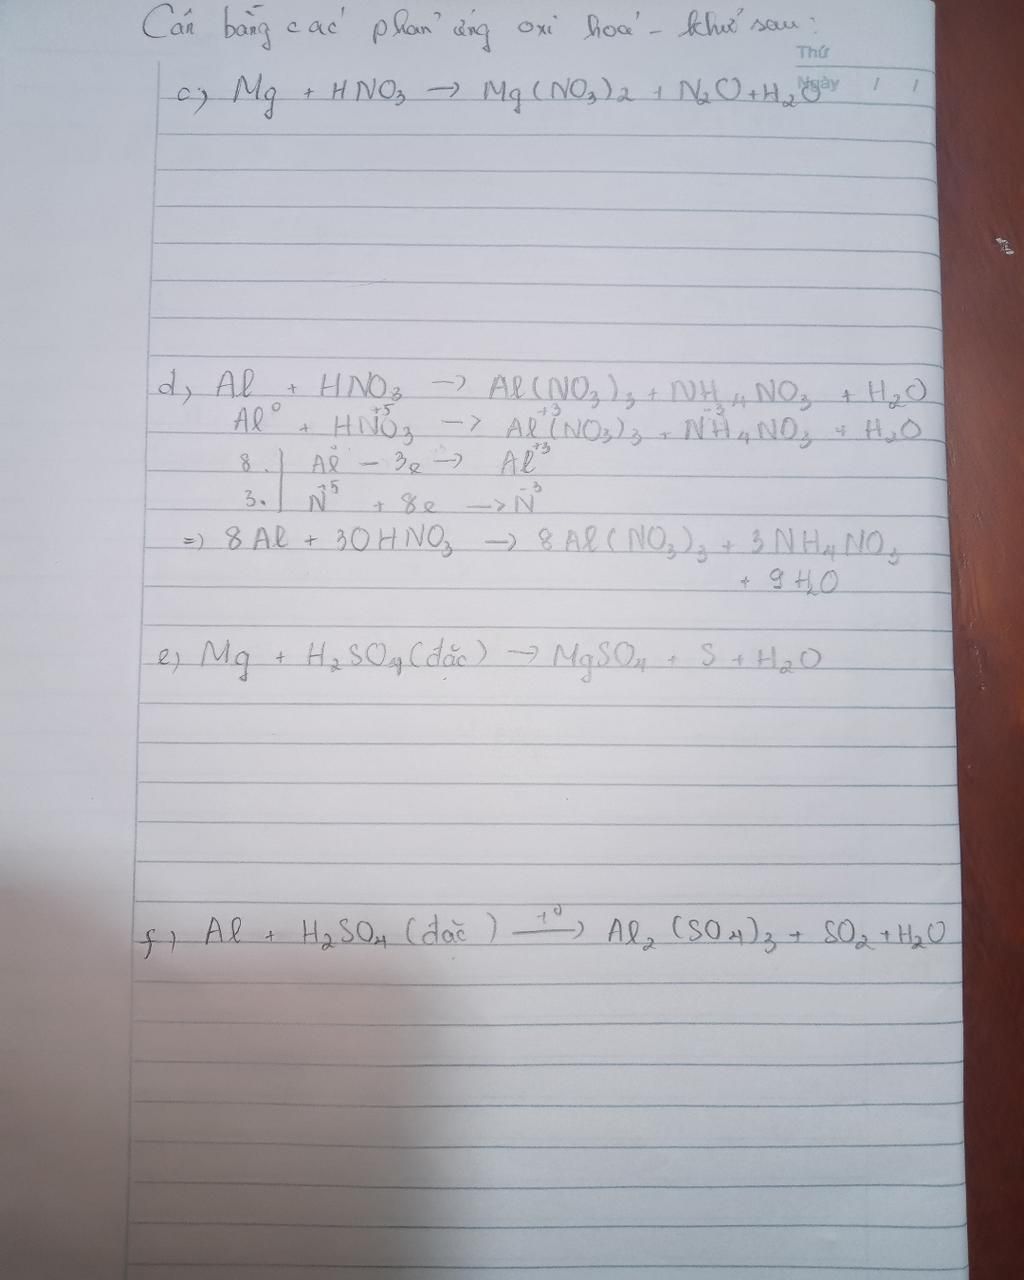 Cân bằng các phản ứng oxi hoá - khử sau:
Thứ
Ngày / /
c) Mg + HNO3 → Mg(NO3)2 + N2O + H2O
d, Al + HNO3 → Al(NO3)3 + NH4NO3 + H2O
Al⁰ + HN⁺⁵O3 → Al⁺³(NO3)3 + N⁻³H4NO3 + H2O
8. | Al⁰ - 3e → Al⁺³
3. | N⁺⁵ + 8e → N⁻³
=) 8Al + 30HNO3 → 8Al(NO3)3 + 3NH4NO3
+ 9H2O
e, Mg + H2SO4(đặc) → MgSO4 + S + H2O
f) Al + H2SO4 (đặc) t⁰→ Al2(SO4)3 + SO2 + H2O